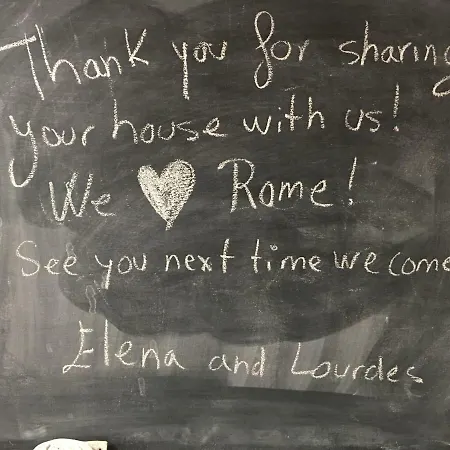 Thank you for sharing
your house with us!
We ♥ Rome!
See you next time we come
Elena and Lourdes